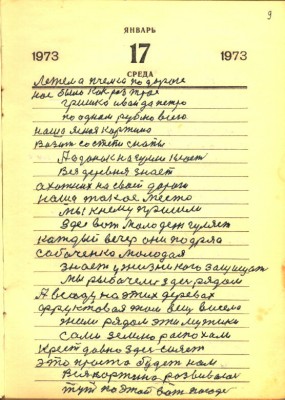 9
ЯНВАРЬ
1973 17 1973
СРЕДА
Летела пчелка по дороге
нас было как раз трое
гришко иван да петро
по одном рублю всего
наша ясная картина
Возит со степи снопы
А данык на гумни
Вся деревня знает
на своей дороги
наша такое место
мы к нему пришли
Здесь вот молодеж гуляет
каждый вечер они подряд
собаченка молодая
знает у жизни кого защищат
мы рыбачем здес рядом
А всаду на этих деревах
фруктовая этой вещ висела
жили рядом эти мужики
сами землю распохали
Крест давно здес силят
это просто будет нам
Вся картина розвивалас
тут по этой вот погоде